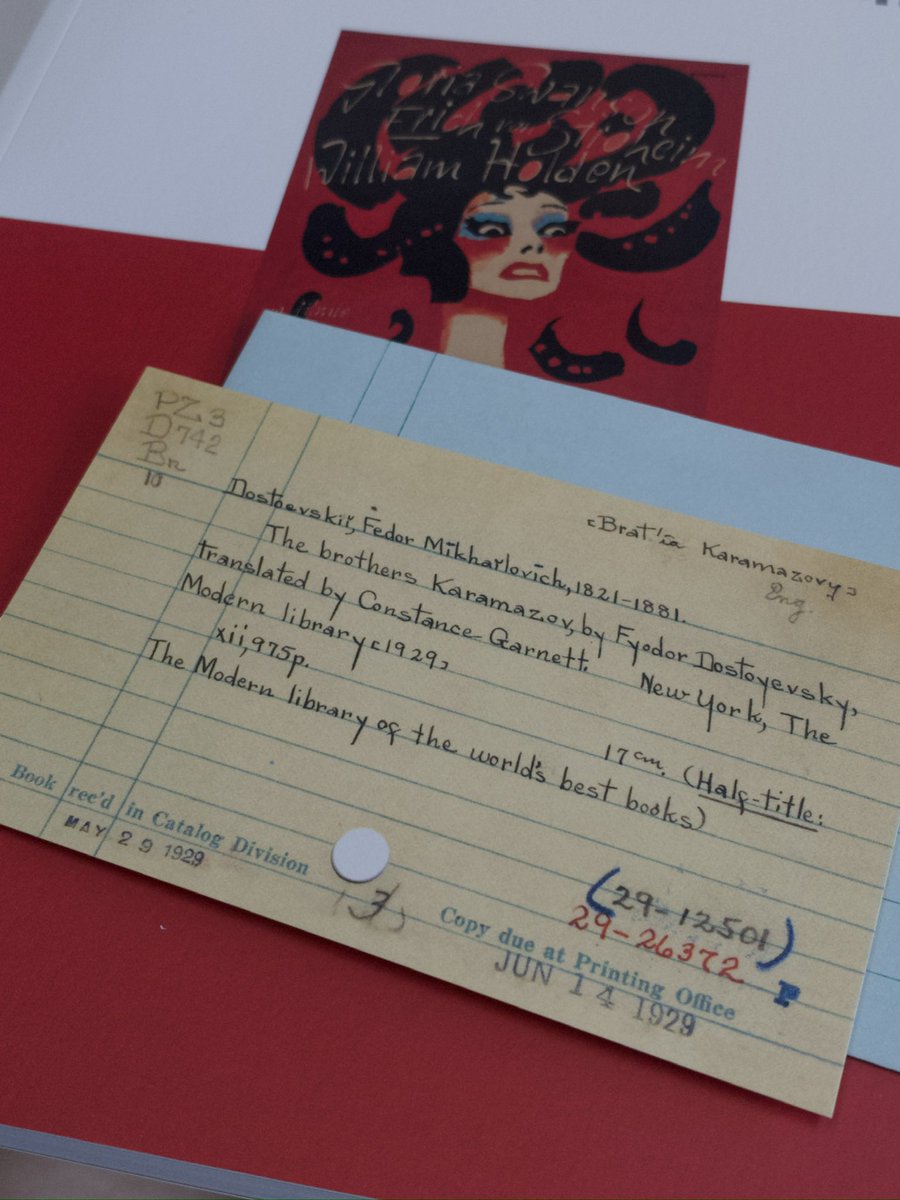 Gloria Swanson
Erich von Stroheim
William Holden
PZ3
D742
Br
10
[Brat'ia Karamazovy]
Eng.
Dostoevskiĭ, Fedor Mikhaĭlovich, 1821-1881.
The brothers Karamazov, by Fyodor Dostoyevsky,
translated by Constance Garnett. New York, The
Modern library [1929]
xii, 975p. 17cm. (Half-title:
The Modern library of the world's best books)
Book rec'd in Catalog Division
MAY 29 1929
(3)
(29-12501)
29-26372
P
Copy due at Printing Office
JUN 14 1929